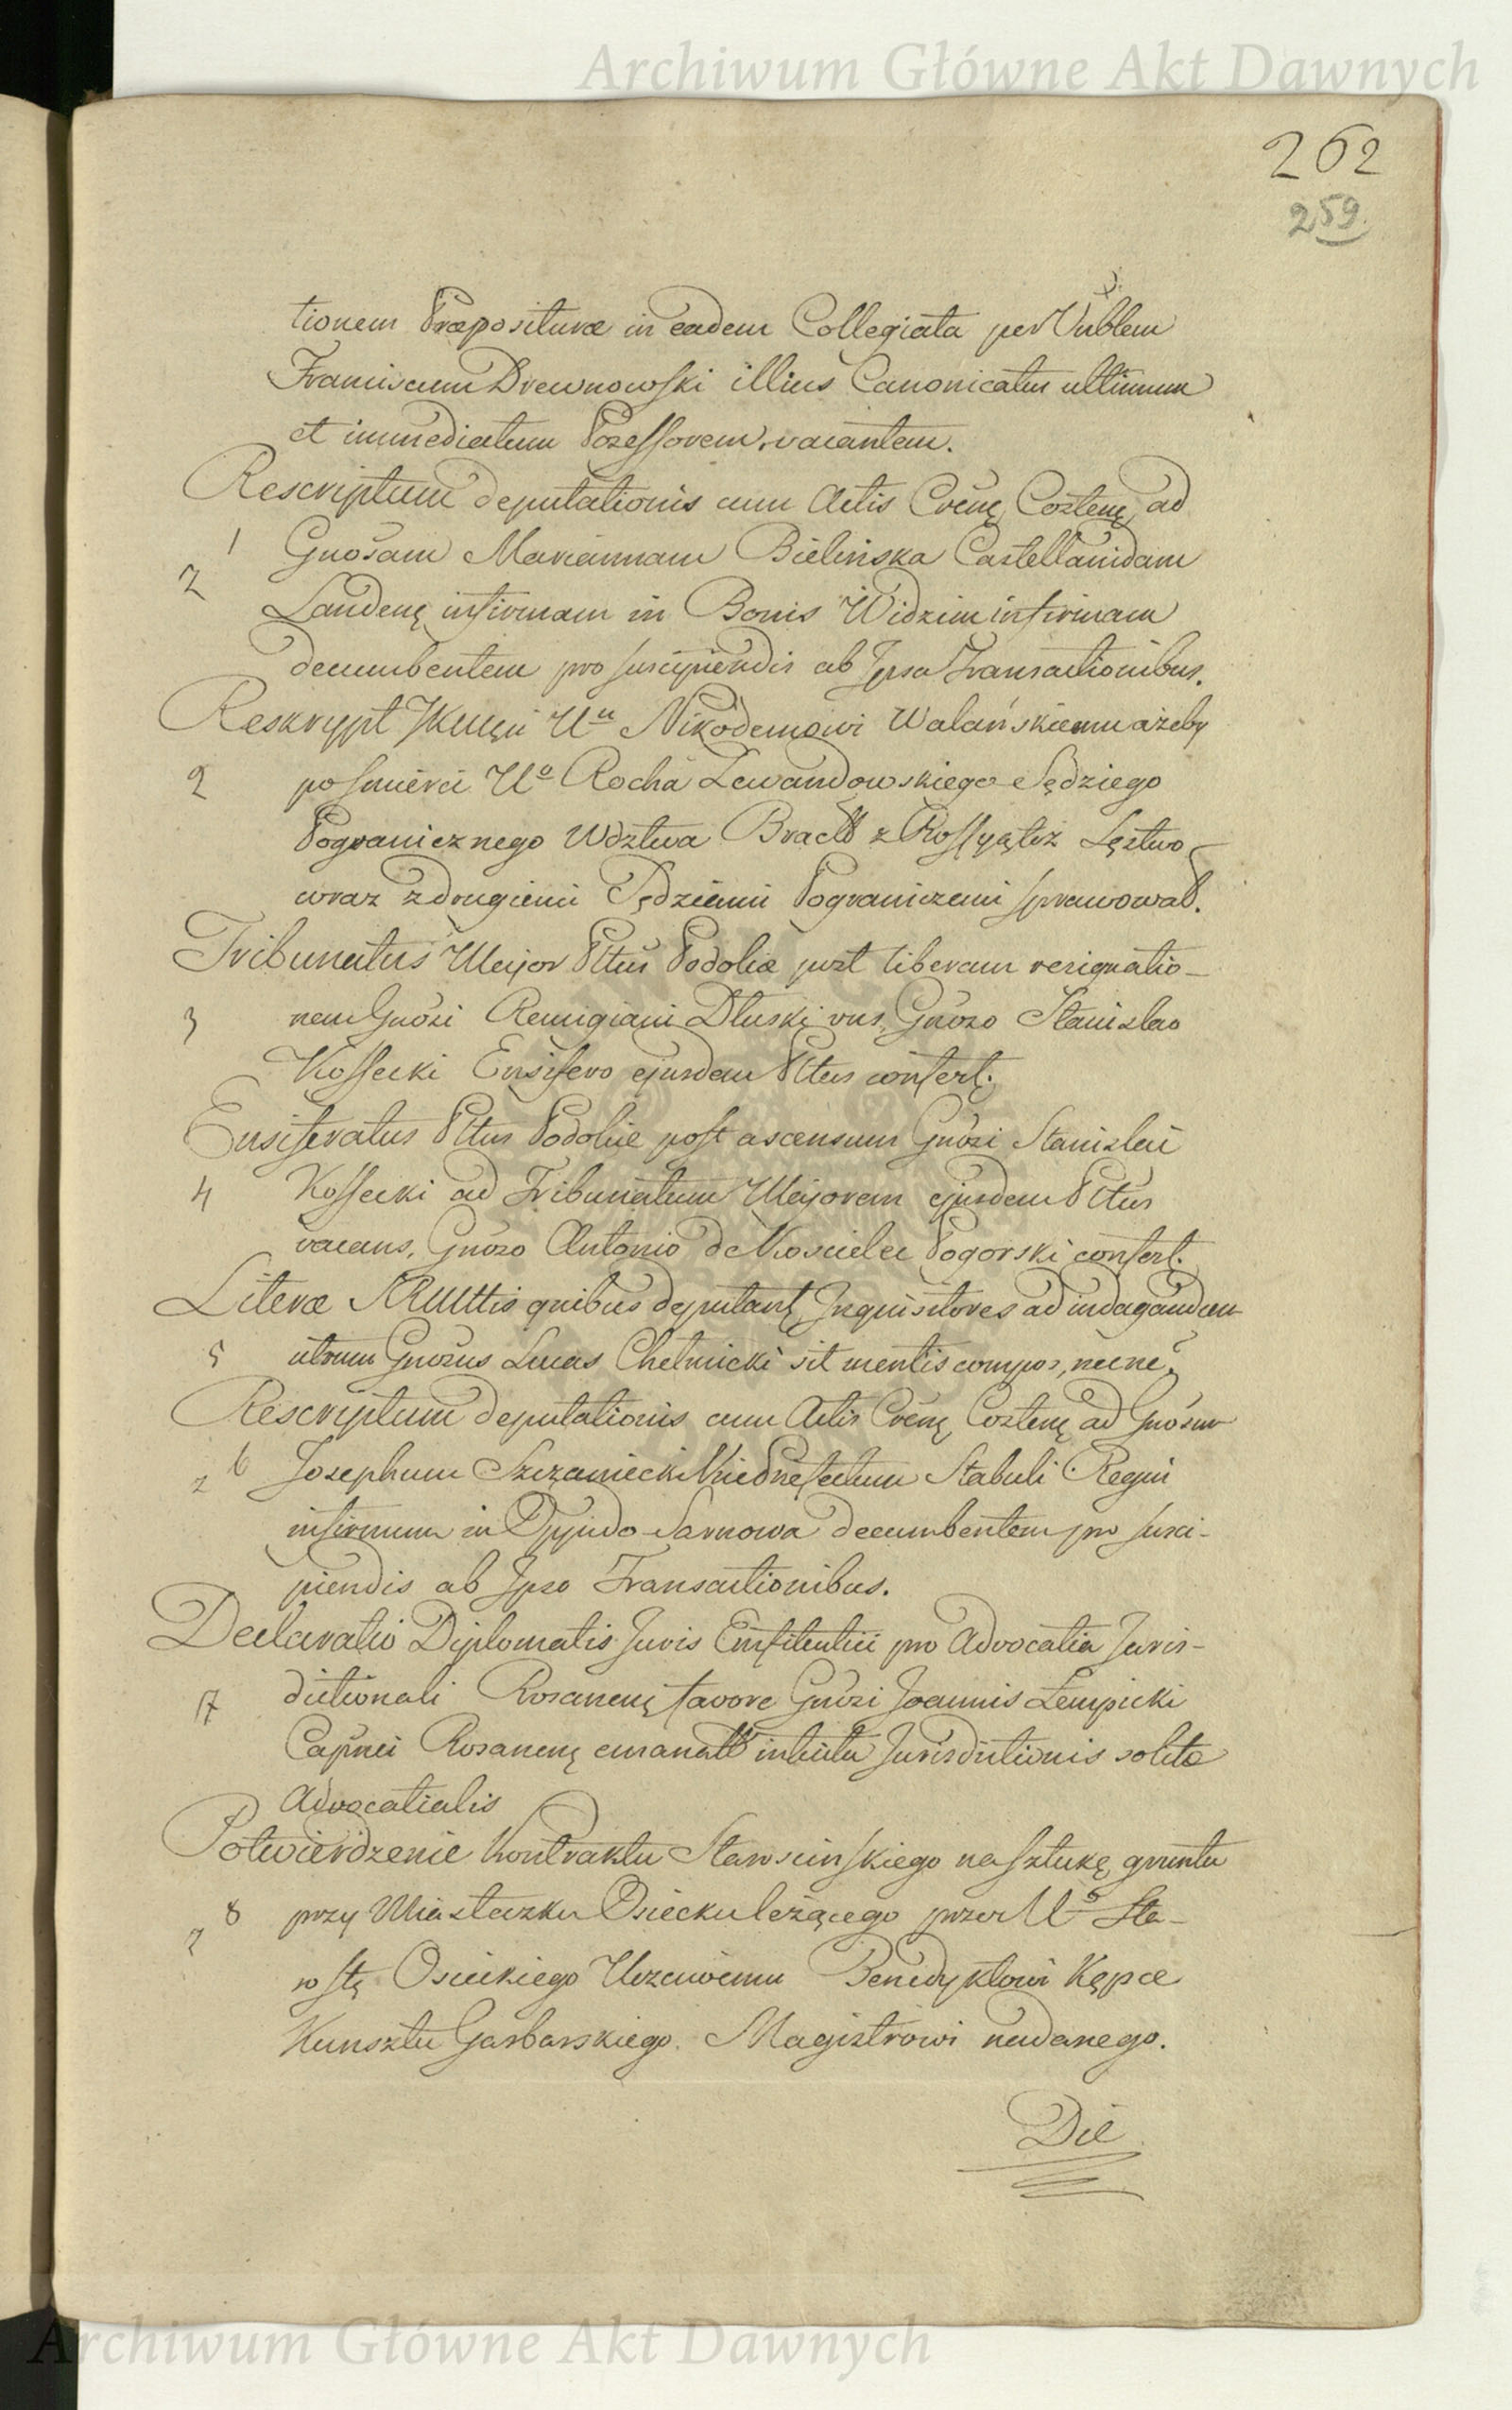 Archiwum Główne Akt Dawnych
262
259.
tionem Præpositurae in eadem Collegiata per Vnblem
Franciscum Drewnowski illius Canonicatus ultimum
et immediatum Possessorem, vacantem.
Rescriptum deputationis cum Actis Crenę Costenę, ad
1 Gnosam Mariannam Bielinska Castellanidam
2
Landenę infirmam in Bonis Widzim infirmam
decumbentem pro suscipiendis ab Ipsa Transactionibus.
Reskrypt JKMci Un Nikodemowi Walańskiemu ażeby
2 po śmierci Uo Rocha Lewandowskiego Sędziego
Pogranicznego Wdztwa Bracł z Rossyą też Sęstwo
wraz z drugiemi Sędziami Pograniczemi sprawował.
Tribunatus Major Pltus Podoliæ post liberam resignatio-
3 nem Gnosi Remigiani Dłuski vns, Gnoso Stanislao
Kossecki Ensifero ejusdem Pltus confert.
Ensiferatus Pltus Podoliæ post ascensum Gnosi Stanislai
4 Kossecki ad Tribunatum Majorem ejusdem Pltus
vacans, Gnoso Antonio de Koscielec Pogorski confert.
Literæ SRMttis quibus deputant Inquisitores ad indagandum
5 utrum Gnosus Lucas Chełmicki sit mentis compos, necne?
Rescriptum deputationis cum Actis Crenę Costenę ad Gnosum
2 6 Josephum Szczaniecki VicePrefectum Stabuli Regni
infirmum in Oppido Sarnowa decumbentem pro susci-
piendis ab Ipso Transactionibus.
Declaratio Diplomatis Juris Emfiteutici pro Advocatia Juris-
17 dictionali Rosanenę favore Gnosi Joannis Lempicki
Capnei Rosanenę emanatt intuitu Jurisdictionis solitæ
Advocatialis
Potwierdzenie Kontraktu Starościńskiego na sztukę gruntu
2 8 przy Miasteczku Osiecku leżącego przez Uo Sta-
rostę Osieckiego Uczciwemu Benedyktowi Kępce
Kunsztu Garbarskiego Magistrowi nadanego.
Die
Archiwum Główne Akt Dawnych